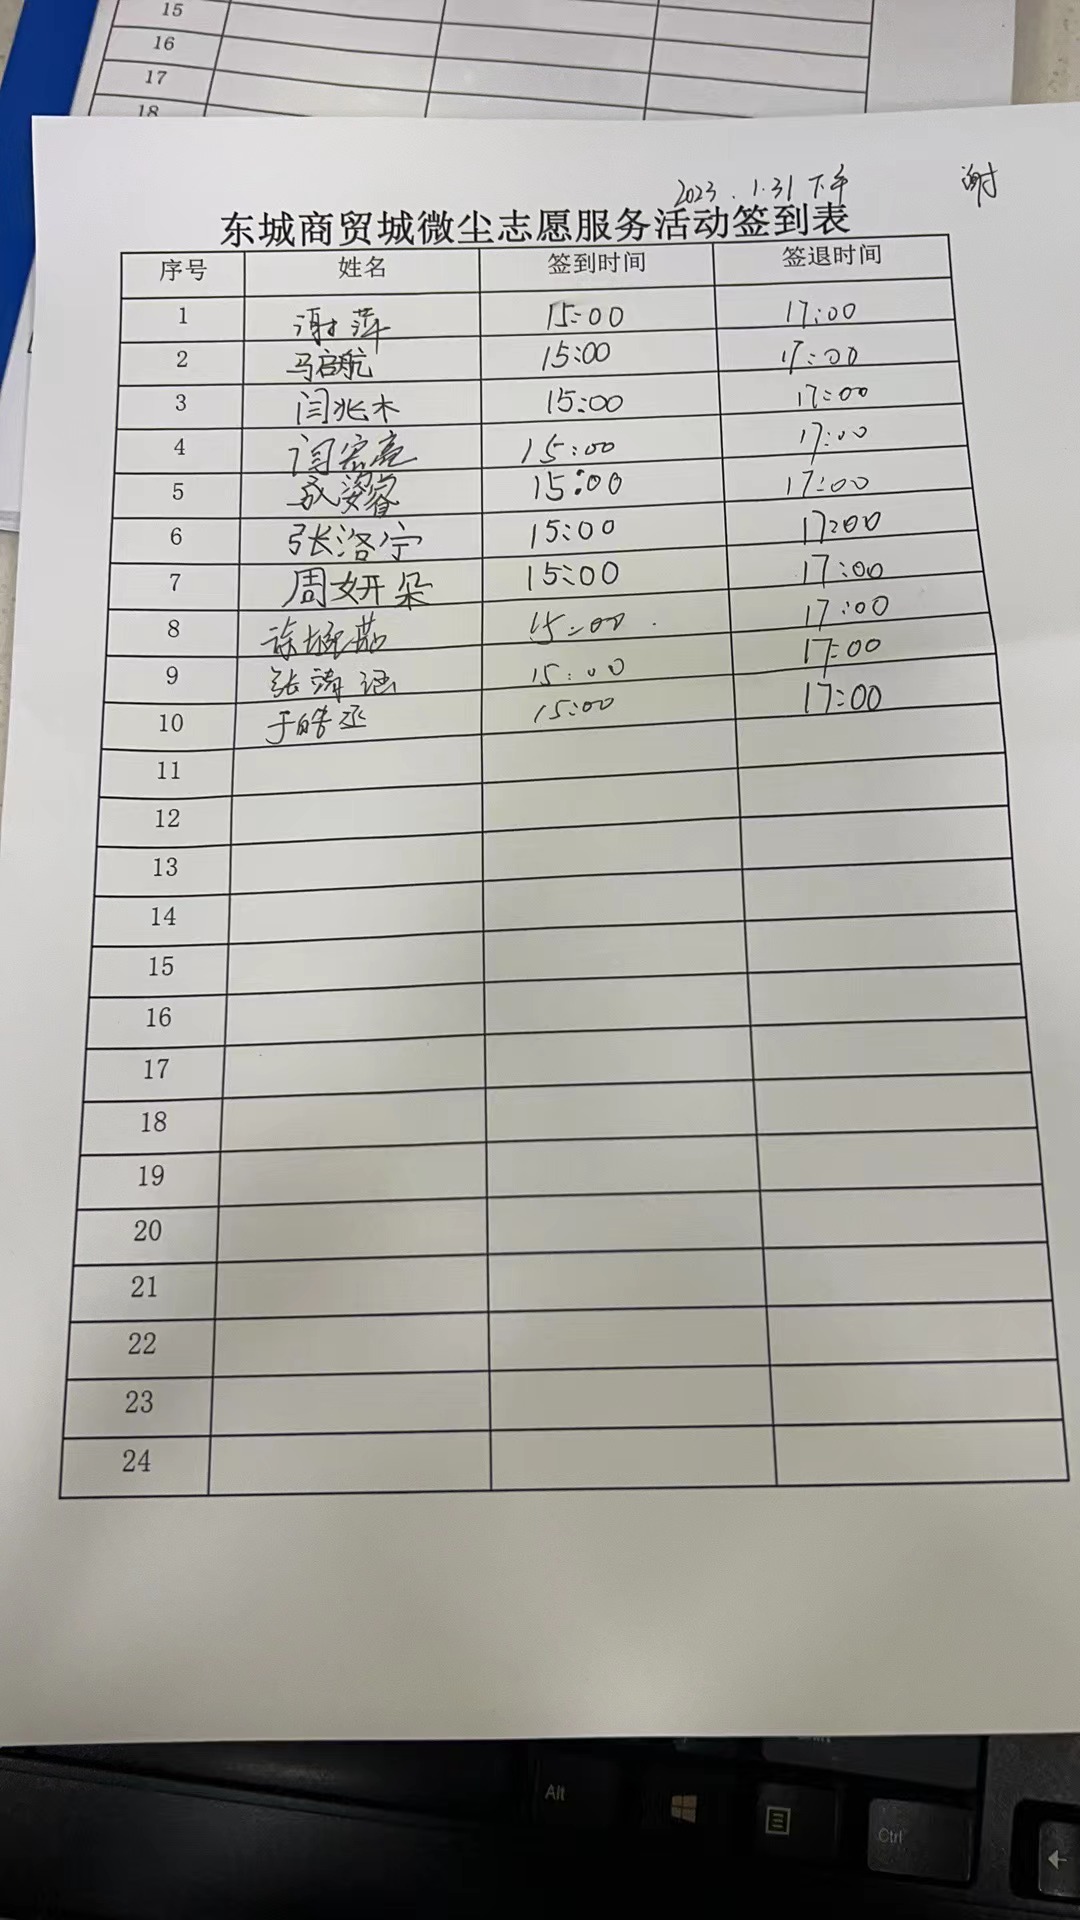 15
16
17
18
2023.1.31下午
谢
东城商贸城微尘志愿服务活动签到表
序号 姓名 签到时间 签退时间
1 谢萍 15:00 17:00
2 马启航 15:00 17:00
3 闫兆木 15:00 17:00
4 闫宏亮 15:00 17:00
5 15:00 17:00
6 张洛宁 15:00 17:00
7 周妍朵 15:00 17:00
8 15:00 17:00
9 张涛涵 15:00 17:00
10 于皓丞 15:00 17:00
11
12
13
14
15
16
17
18
19
20
21
22
23
24
Alt
Ctrl